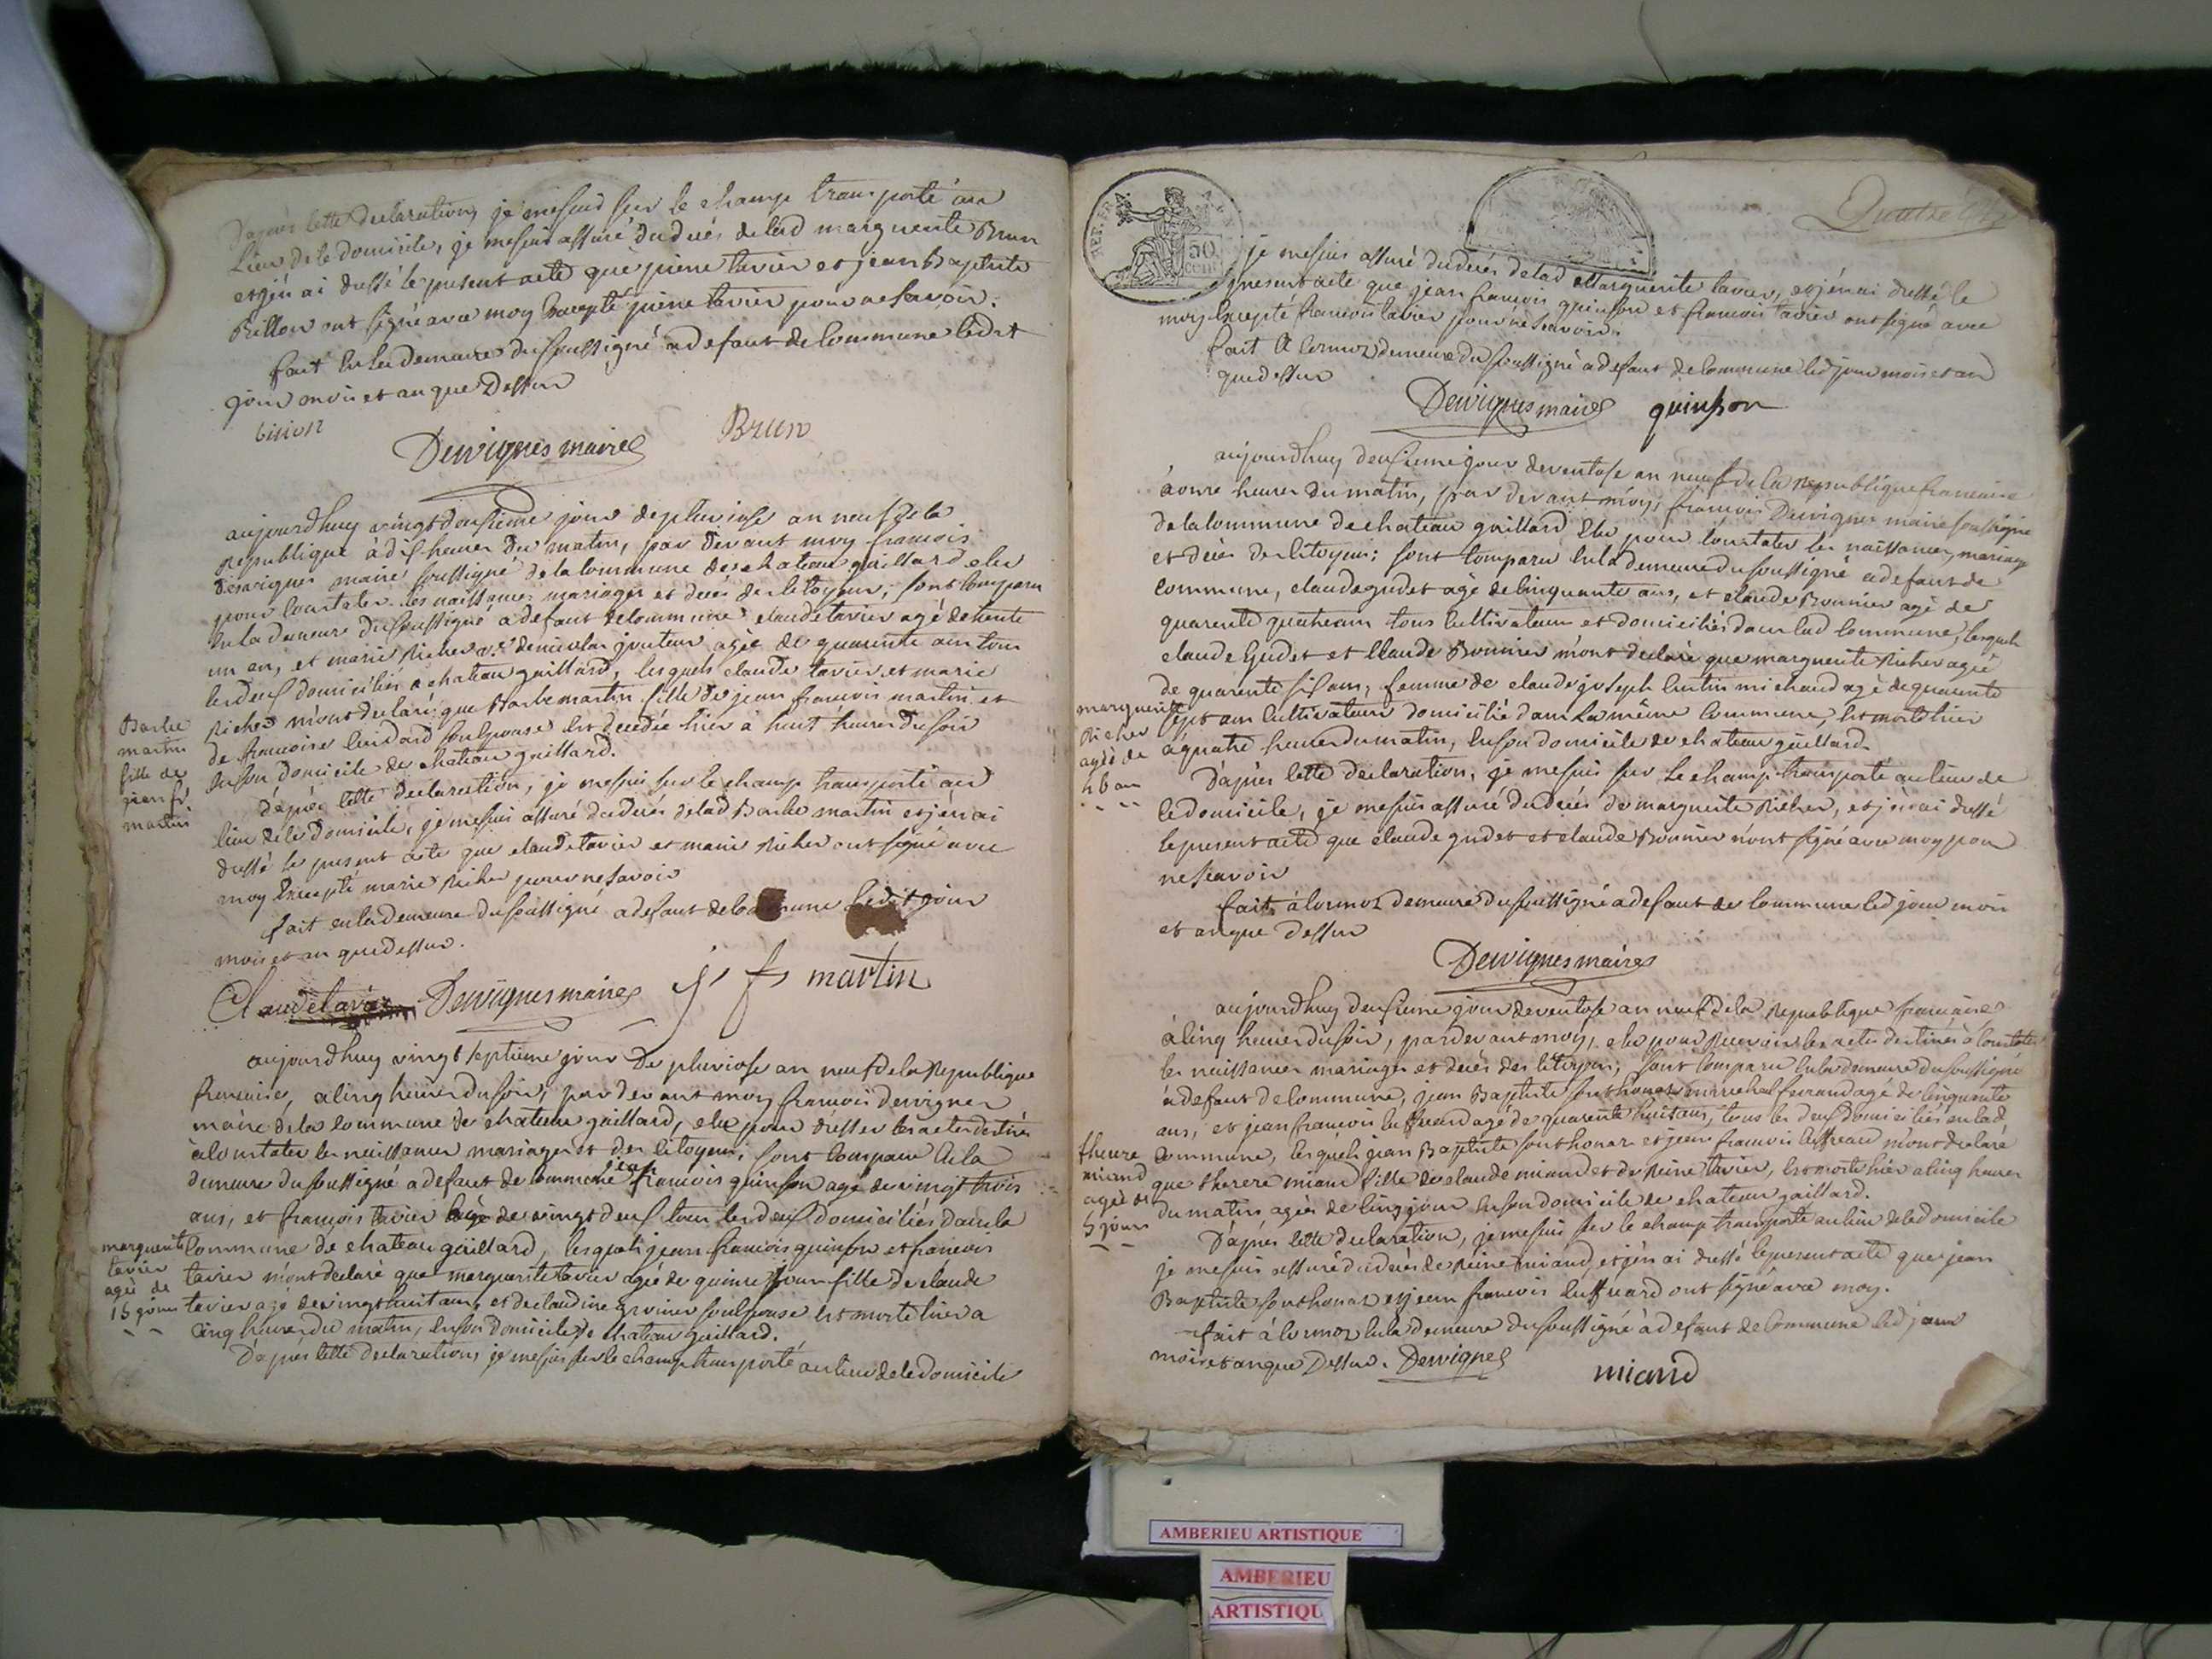 D'après cette declaration, je me suis sur le champ transporté au
lieu de ce domicile, je me suis assuré du decés de lad marguerite Brun
et j'en ai dressé le present acte que pierre tavier et jean Baptiste
Billon ont signé avec moy Excepté pierre tavier pour ne savoir.
fait en la demeure du soussigné a defaut de commune ledit
jour mois et an que Dessus
Dervignes maire
Brun
aujourdhuy vingt deusieme jour de pluviose an neuf de la
Republique à dix heures du matin, par devant moy francois
dervignes maire soussigné de la commune de chateau gaillard elu
pour constater les naissances mariages et decés des citoyens, sont comparu
en la demeure du soussigné a defaut de commune claude tavier agé de trente
un an, et marie Richer de nicolas agée de quarente ans tous
les deux domiciliés a chateau gaillard, lesquels claude tavier et marie
Richer m'ont declaré que Barbe martin fille de jean francois martin et
de francoise son Epouse Est decedée hier à huit heures du soir
en son domicile de chateau gaillard.
Barbe
martin
fille de
jean fs
martin
d'après cette declaration, je me suis sur le champ transporté au
lieu de ce domicile, je me suis assuré du decés de lad Barbe martin et j'en ai
dressé le present acte que claude tavier et marie Richer ont signé avec
moy Excepté marie Richer pour ne savoir
fait en la demeure du soussigné a defaut de commune ledit jour
mois et an que dessus.
Claude tavier Dervignes maire j fs martin
aujourdhuy vingt septieme jour De pluviose an neuf de la Republique
francaise, a cinq heures du soir, par devant moy francois dervignes
maire de la commune de chateau gaillard, elu pour dresser les actes destinés
à constater les naissances mariages et des citoyens, sont comparu a la
demeure du soussigné a defaut de commune jean francois quinson agé de vingt trois
ans, et françois tavier agé de vingt deux tous les deux domiciliés dans la
commune de chateau gaillard, lesquels jean francois quinson et francois
tavier m'ont declaré que marguerite tavier agée de quinze jours fille de claude
tavier agé de vingt huit ans, et de claudine son Epouse Est morte hier a
cinq heures du matin, en son domicile de chateau gaillard.
marguerite
tavier
agée de
15 jours
D'après cette declaration, je me suis sur le champ transporté au lieu de ce domicile
REP. FR.
50
cent
je me suis assuré du decés de lad Marguerite tavier, et j'en ai dressé le
present acte que jean francois quinson et francois tavier ont signé avec
moy Excepté francois tavier pour ne scavoir.
fait A cormoz demeure du soussigné a defaut de commune led jour mois et an
que dessus
Dervignes maire quinson
aujourdhuy deusieme jour de ventose an neuf de la republique francaise
à onze heures du matin, par devant moy, francois Dervignes maire soussigné
de la commune de chateau gaillard Elu pour constater les naissances, mariages
et decés des citoyens; sont comparu en la demeure du soussigné a defaut de
commune, claude gudet agé de cinquante ans, et claude Bonnier agé de
quarente quatre ans tous cultivateurs et domiciliés dans lad commune, lesquels
claude Gudet et Claude Bonnier m'ont declaré que marguerite Richer agée
de quarente six ans, femme de claude joseph michaud agé de quarente
sept ans cultivateur domicilié dans la même commune, Est morte hier
à quatre heures du matin, en son domicile de chateau gaillard.
marguerite
Richer
agée de
46 ans
D'après cette declaration, je me suis sur le champ transporté au lieu de
ce domicile, je me suis assuré du decés de marguerite Richer, et j'en ai dressé
le present acte que claude gudet et claude Bonnier n'ont signé avec moy pour
ne scavoir
fait à cormoz demeure du soussigné a defaut de commune led jour mois
et an que dessus
Dervignes maire
aujourdhuy deusieme jour de ventose an neuf de la Republique francaise
à cinq heures du soir, pardevant moy, elu pour Recevoir les actes destinés à constater
les naissances mariages et decés des citoyens; sont comparu en la demeure du soussigné
a defaut de commune, jean Baptiste marechal ferrand agé de cinquante
ans, et jean francois agé de quarente huit ans, tous les deux domiciliés en lad
commune, lesquels jean Baptiste et jean francois m'ont declaré
que therese miand fille de claude miand et de Reine tavier, Est morte hier a cinq heures
du matin agée de cinq jours en son domicile de chateau gaillard.
therese
miand
agée de
5 jours
D'après cette declaration, je me suis sur le champ transporté au lieu de ce domicile
je me suis assuré du decés de Reine miand, et j'en ai dressé le present acte que jean
Baptiste et jean francois ont signé avec moy.
fait à cormoz en la demeure du soussigné à defaut de commune led jour
mois et an que Dessus. Dervignes
miand
AMBERIEU ARTISTIQUE
AMBERIEU
ARTISTIQU